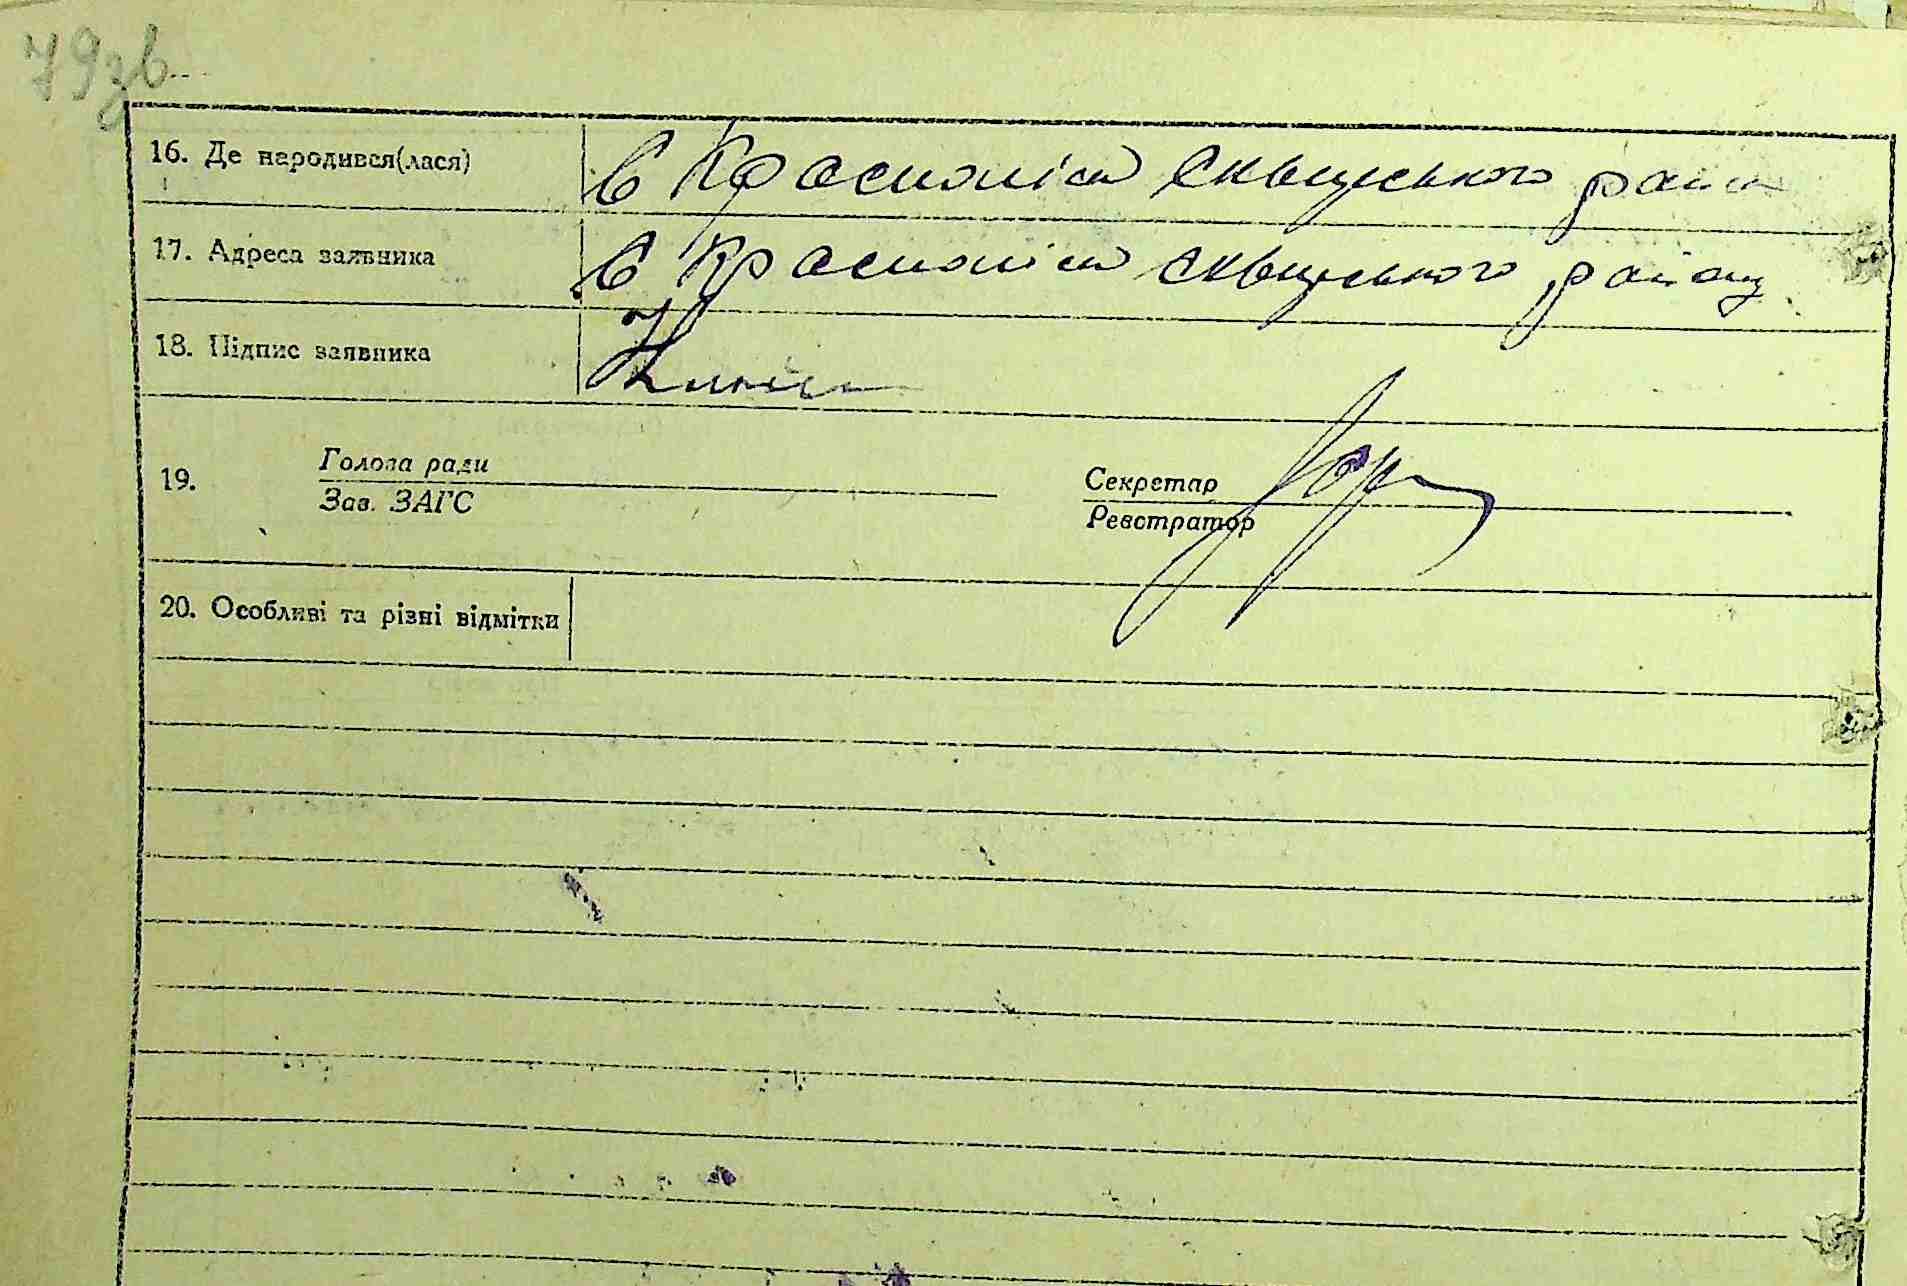 79зв
16. Де народився(лася) с Красноліси Сквирського району
17. Адреса заявника с Красноліси Сквирського району
18. Підпис заявника
19. Голова ради Секретар
Зав. ЗАГС Реєстратор
20. Особливі та різні відмітки